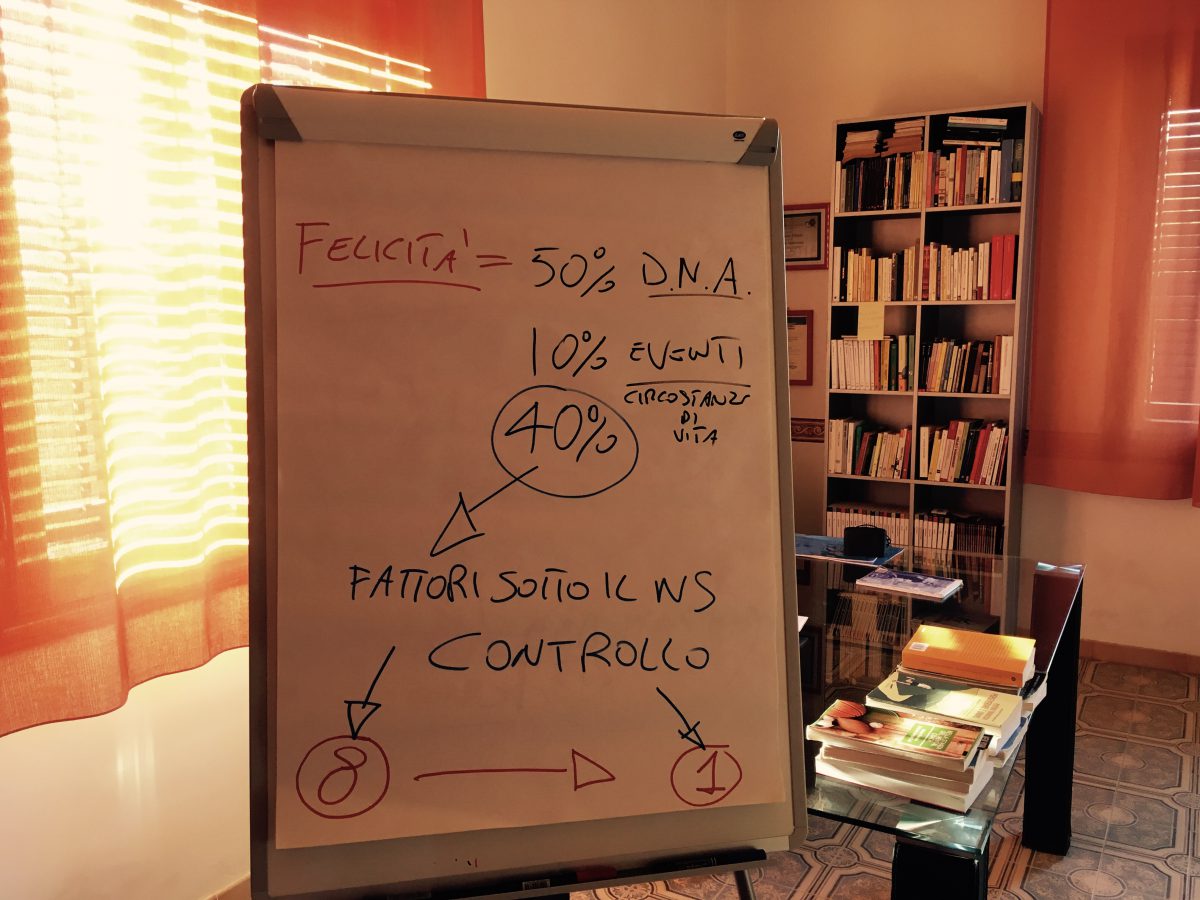 FELICITA' = 50% D.N.A.
10% EVENTI
CIRCOSTANZE
DI
VITA
40%
FATTORI SOTTO IL NS
CONTROLLO
8 1